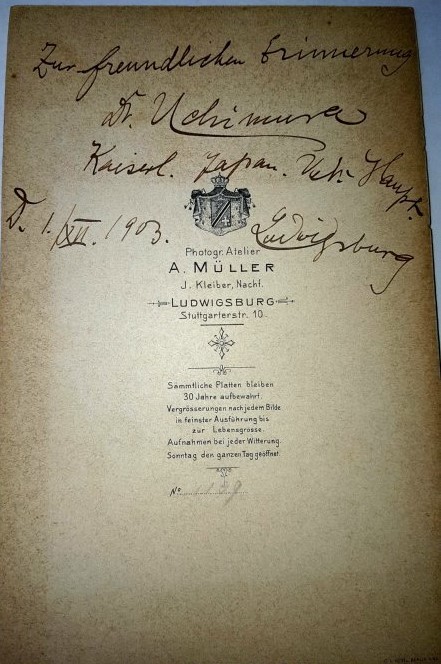 Zur freundlichen Erinnerung
Dr. Uchimura
Kaiserl. Japan. Vet. Haupt.
D. 1./XII. 1903. Ludwigsburg
Photogr. Atelier
A. MÜLLER
J. Kleiber, Nachf.
LUDWIGSBURG
Stuttgarterstr. 10.
Sämmtliche Platten bleiben
30 Jahre aufbewahrt.
Vergrösserungen nach jedem Bilde
in feinster Ausführung bis
zur Lebensgrösse.
Aufnahmen bei jeder Witterung.
Sonntag den ganzen Tag geöffnet.
No